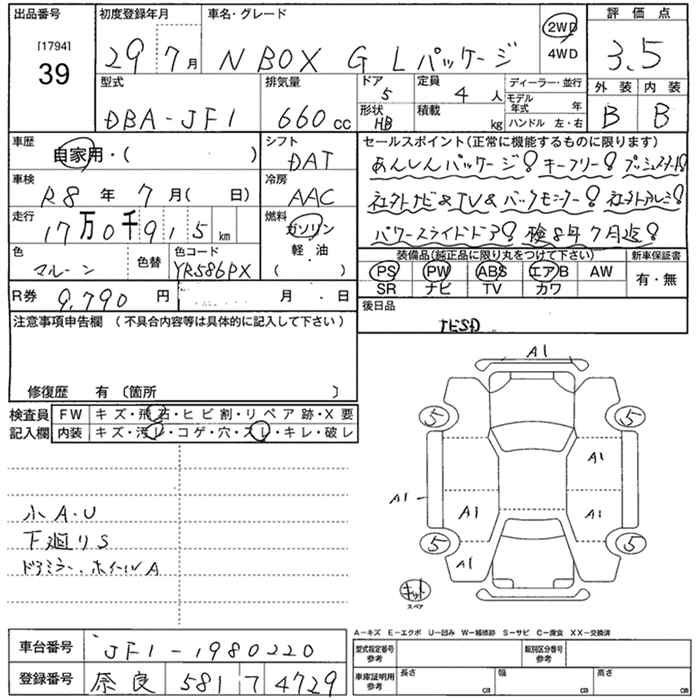 出品番号
[1794]
39
初度登録年月
29 7月
車名・グレード
N BOX G Lパッケージ
2WD
4WD
評価点
3.5
外装 内装
B B
型式
DBA-JF1
排気量
660cc
ドア
5
形状
HB
定員
4人
積載
kg
ディーラー・並行
モデル年式 年
ハンドル 左・右
車歴
自家用・( )
シフト
DAT
車検
R8年 7月( 日)
冷房
AAC
走行
17万0千915km
燃料
ガソリン
軽油
( )
色
マルーン
色替
色コード
YR586PX
R券 9,790円
月 日
セールスポイント(正常に機能するものに限ります)
あんしんパッケージ! キーフリー! プッシュスタート!
社外ナビ&TV&バックモニター! 社外アルミ!
パワースライドドア! 検8年7月迄!
装備品(純正品に限り丸をつけて下さい)
新車保証書
PS PW ABS エアB AW
SR ナビ TV カワ
有・無
後日品
注意事項申告欄 (不具合内容等は具体的に記入して下さい)
修復歴 有 〔箇所 〕
検査員記入欄
FW キズ・飛石・ヒビ割・リペア跡・X要
内装 キズ・汚レ・コゲ・穴・スレ・キレ・破レ
小A・U
下廻りS
ドアミラー、ホイールA
A1
5 5
A1
A1 A1 A1
5 5
A1
キット
スペア
A-キズ E-エクボ U-凹み W-補修跡 S-サビ C-腐食 XX-交換済
車台番号 JF1-1980220
登録番号 奈良 581 7 4729
型式指定番号
参考
類別区分番号
参考
車庫証明用
参考
長さ cm
幅 cm
高さ cm